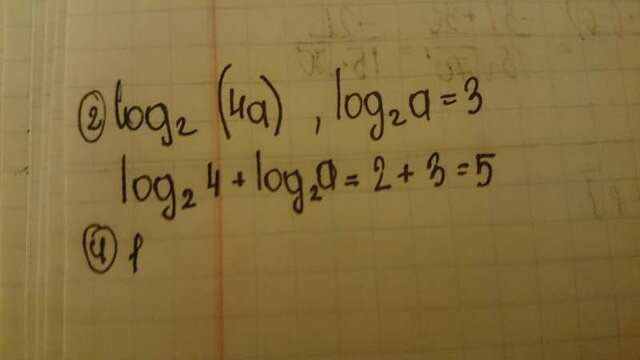 ② log₂ (4a) , log₂a = 3
log₂ 4 + log₂a = 2 + 3 = 5
④